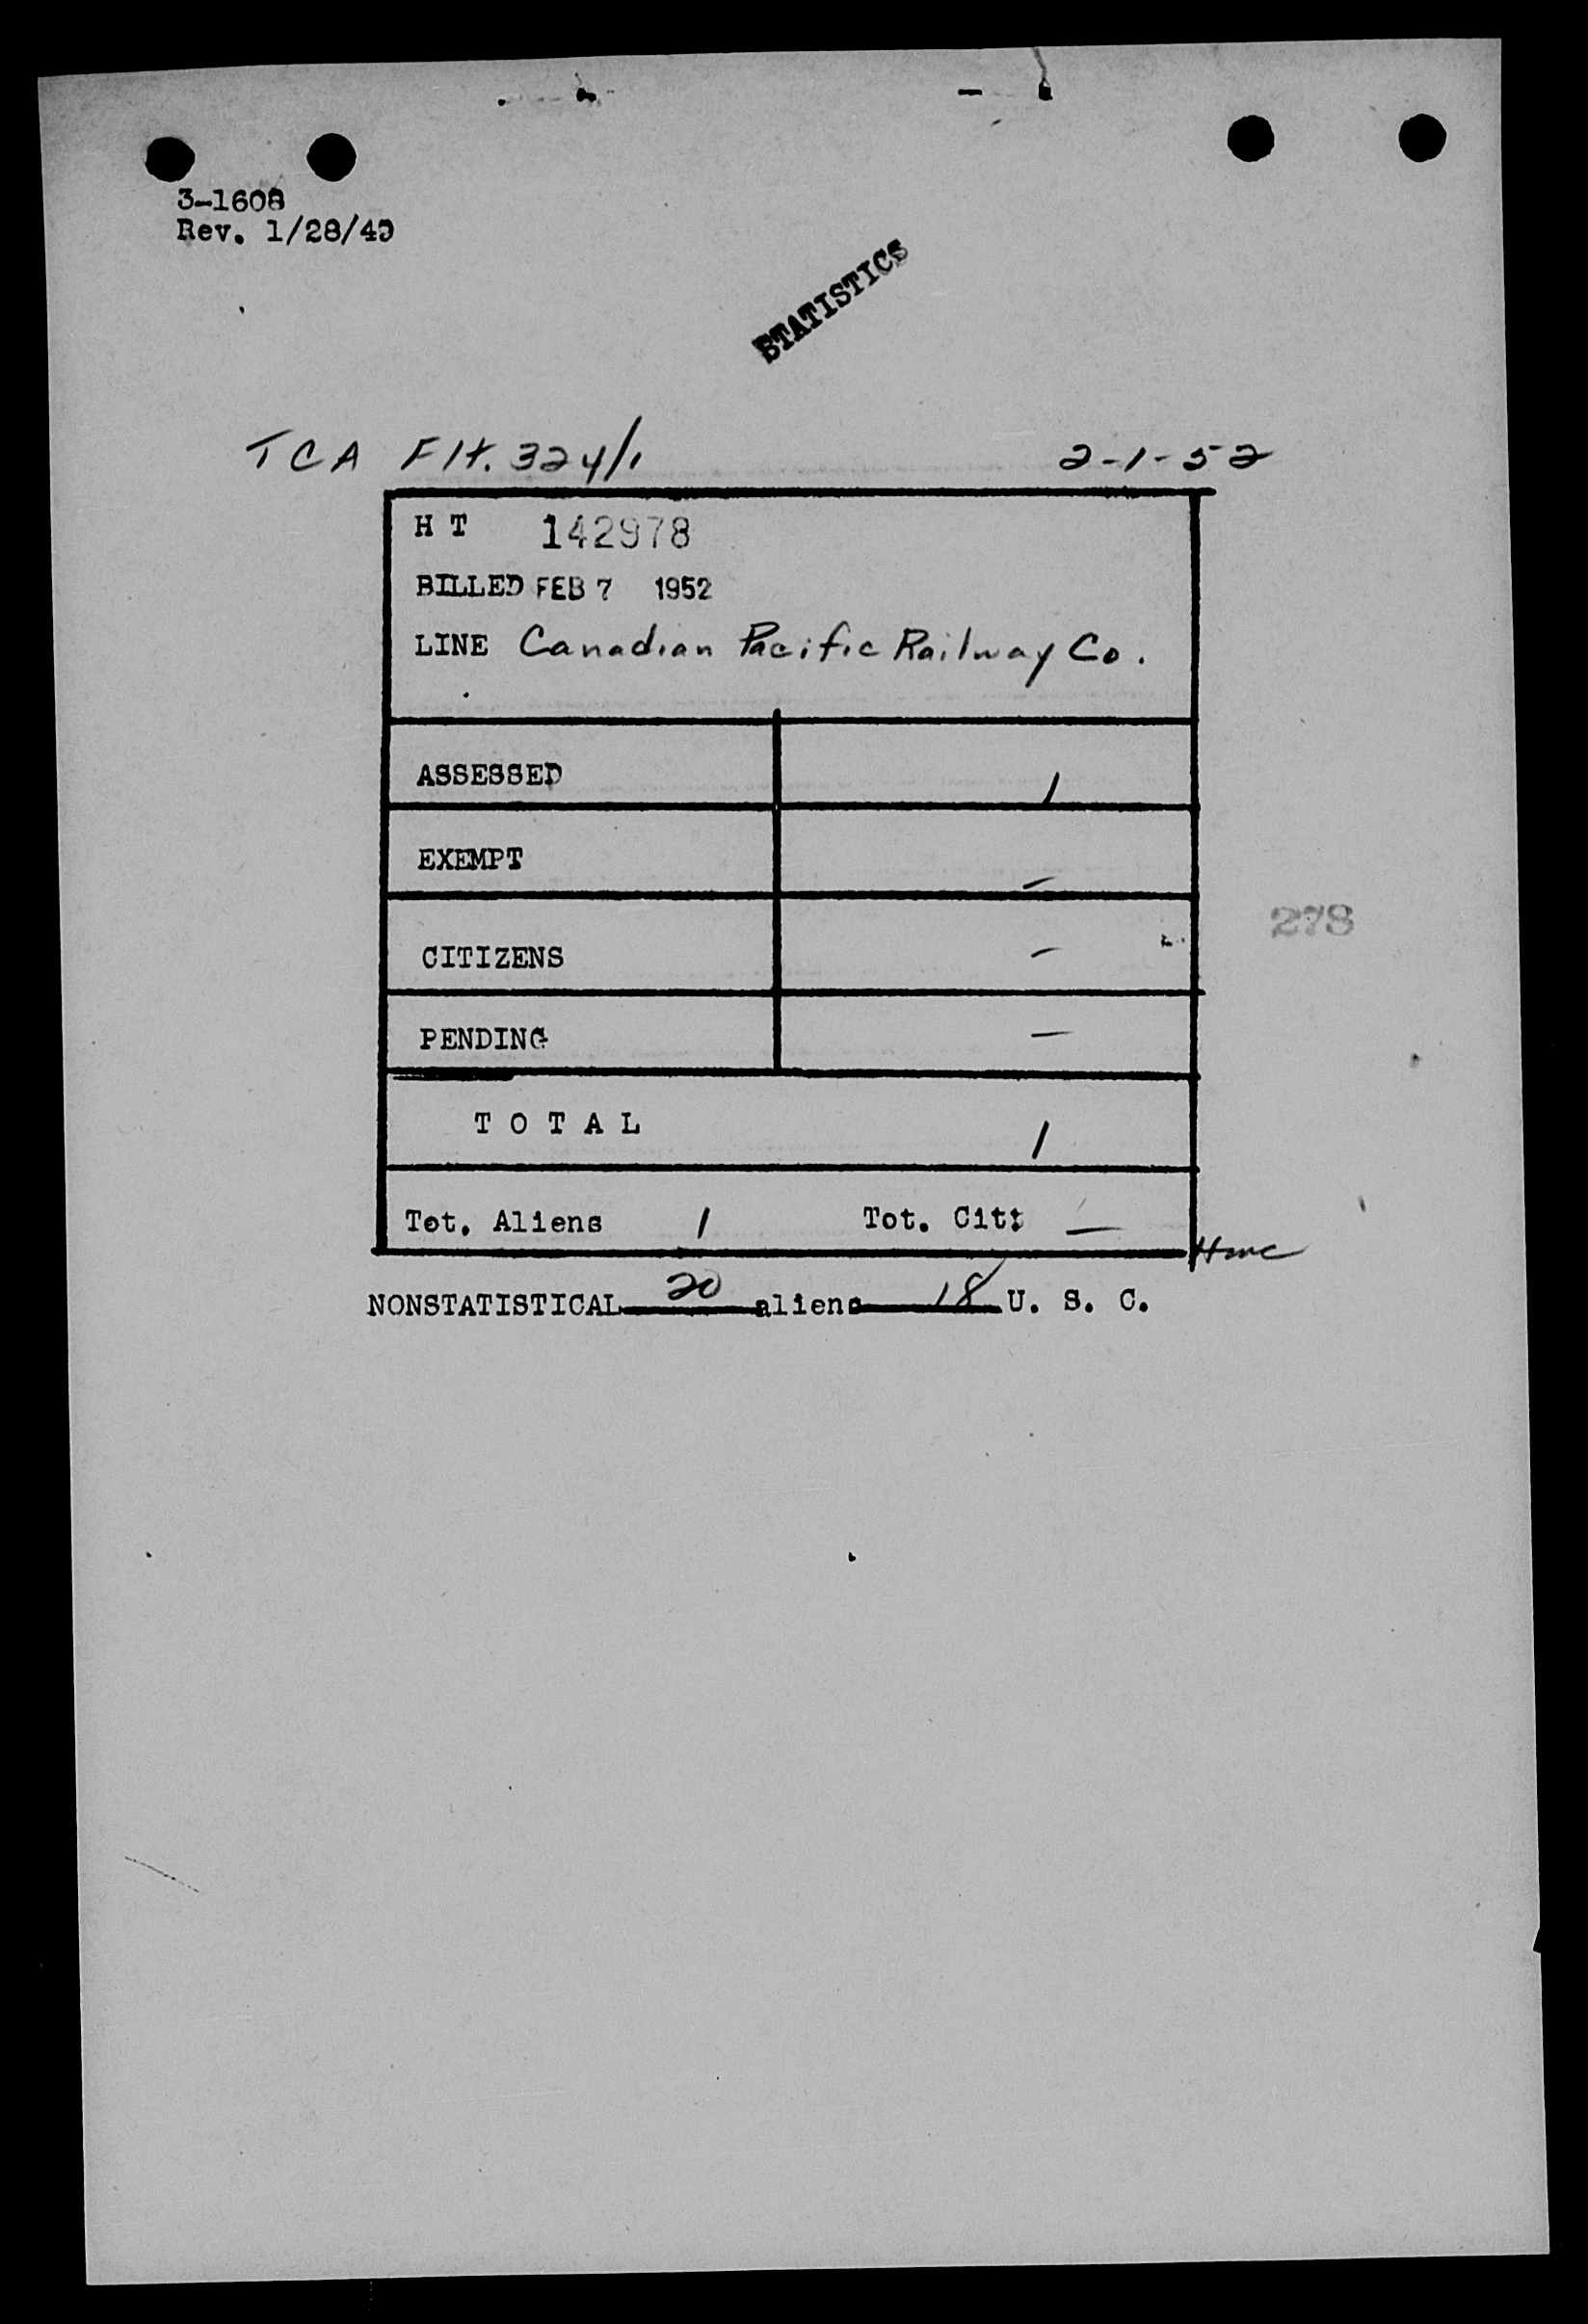 3-1608
Rev. 1/28/49
STATISTICS
TCA Flt. 324/1 2-1-52
H T 142978
BILLED FEB 7 1952
LINE Canadian Pacific Railway Co.
ASSESSED 1
EXEMPT –
CITIZENS –
278
PENDING –
T O T A L 1
Tot. Aliens 1 Tot. Cit: –
NONSTATISTICAL 20 aliens 18 U. S. C.